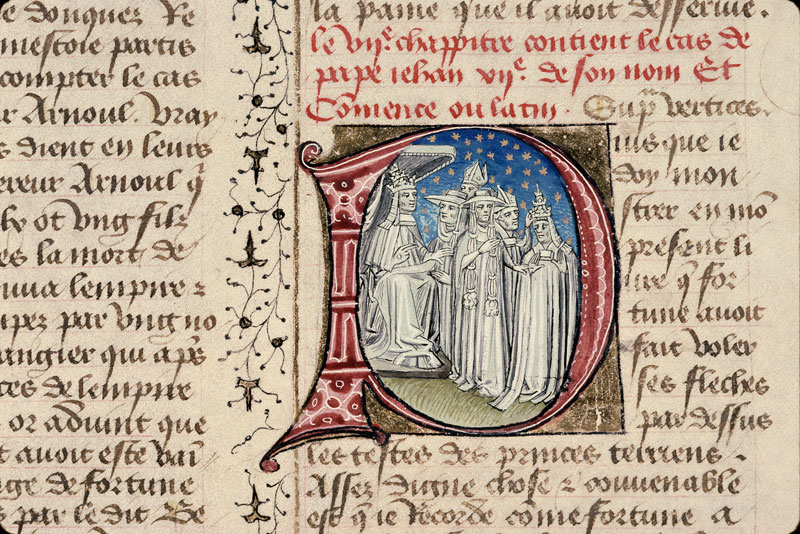 e donquez Re
mestoie partis
compter le cas
r Arnoul. Vray
s dient en leurs
ereur Arnoul q̃
ot vng filz
es la mort de
lempire ⁊
upez par vng no
angier qui ap̃s
ces de lempire
or aduint que
t auoit este
ge de fortune
s par le dit Be
la paine que il auoit desseruie.
le viiᵉ. chappitre contient le cas de
pape iehan viiᵉ. de son nom Et
Comence ou latin. Sup̃ vertices.
Puis que ie
doy mon
strer en mõ
present li
ure q̃ for
tune auoit
fait voler
ses fleches
par dessus
les testes des princes terriens.
Assez digne chose ⁊ conuenable
est q̃ ie Recorde cõme fortune a